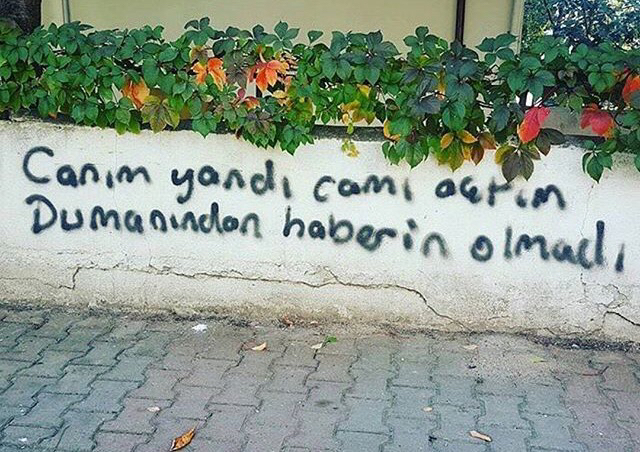 Canım yandı camı açtım
Dumanından haberin olmadı